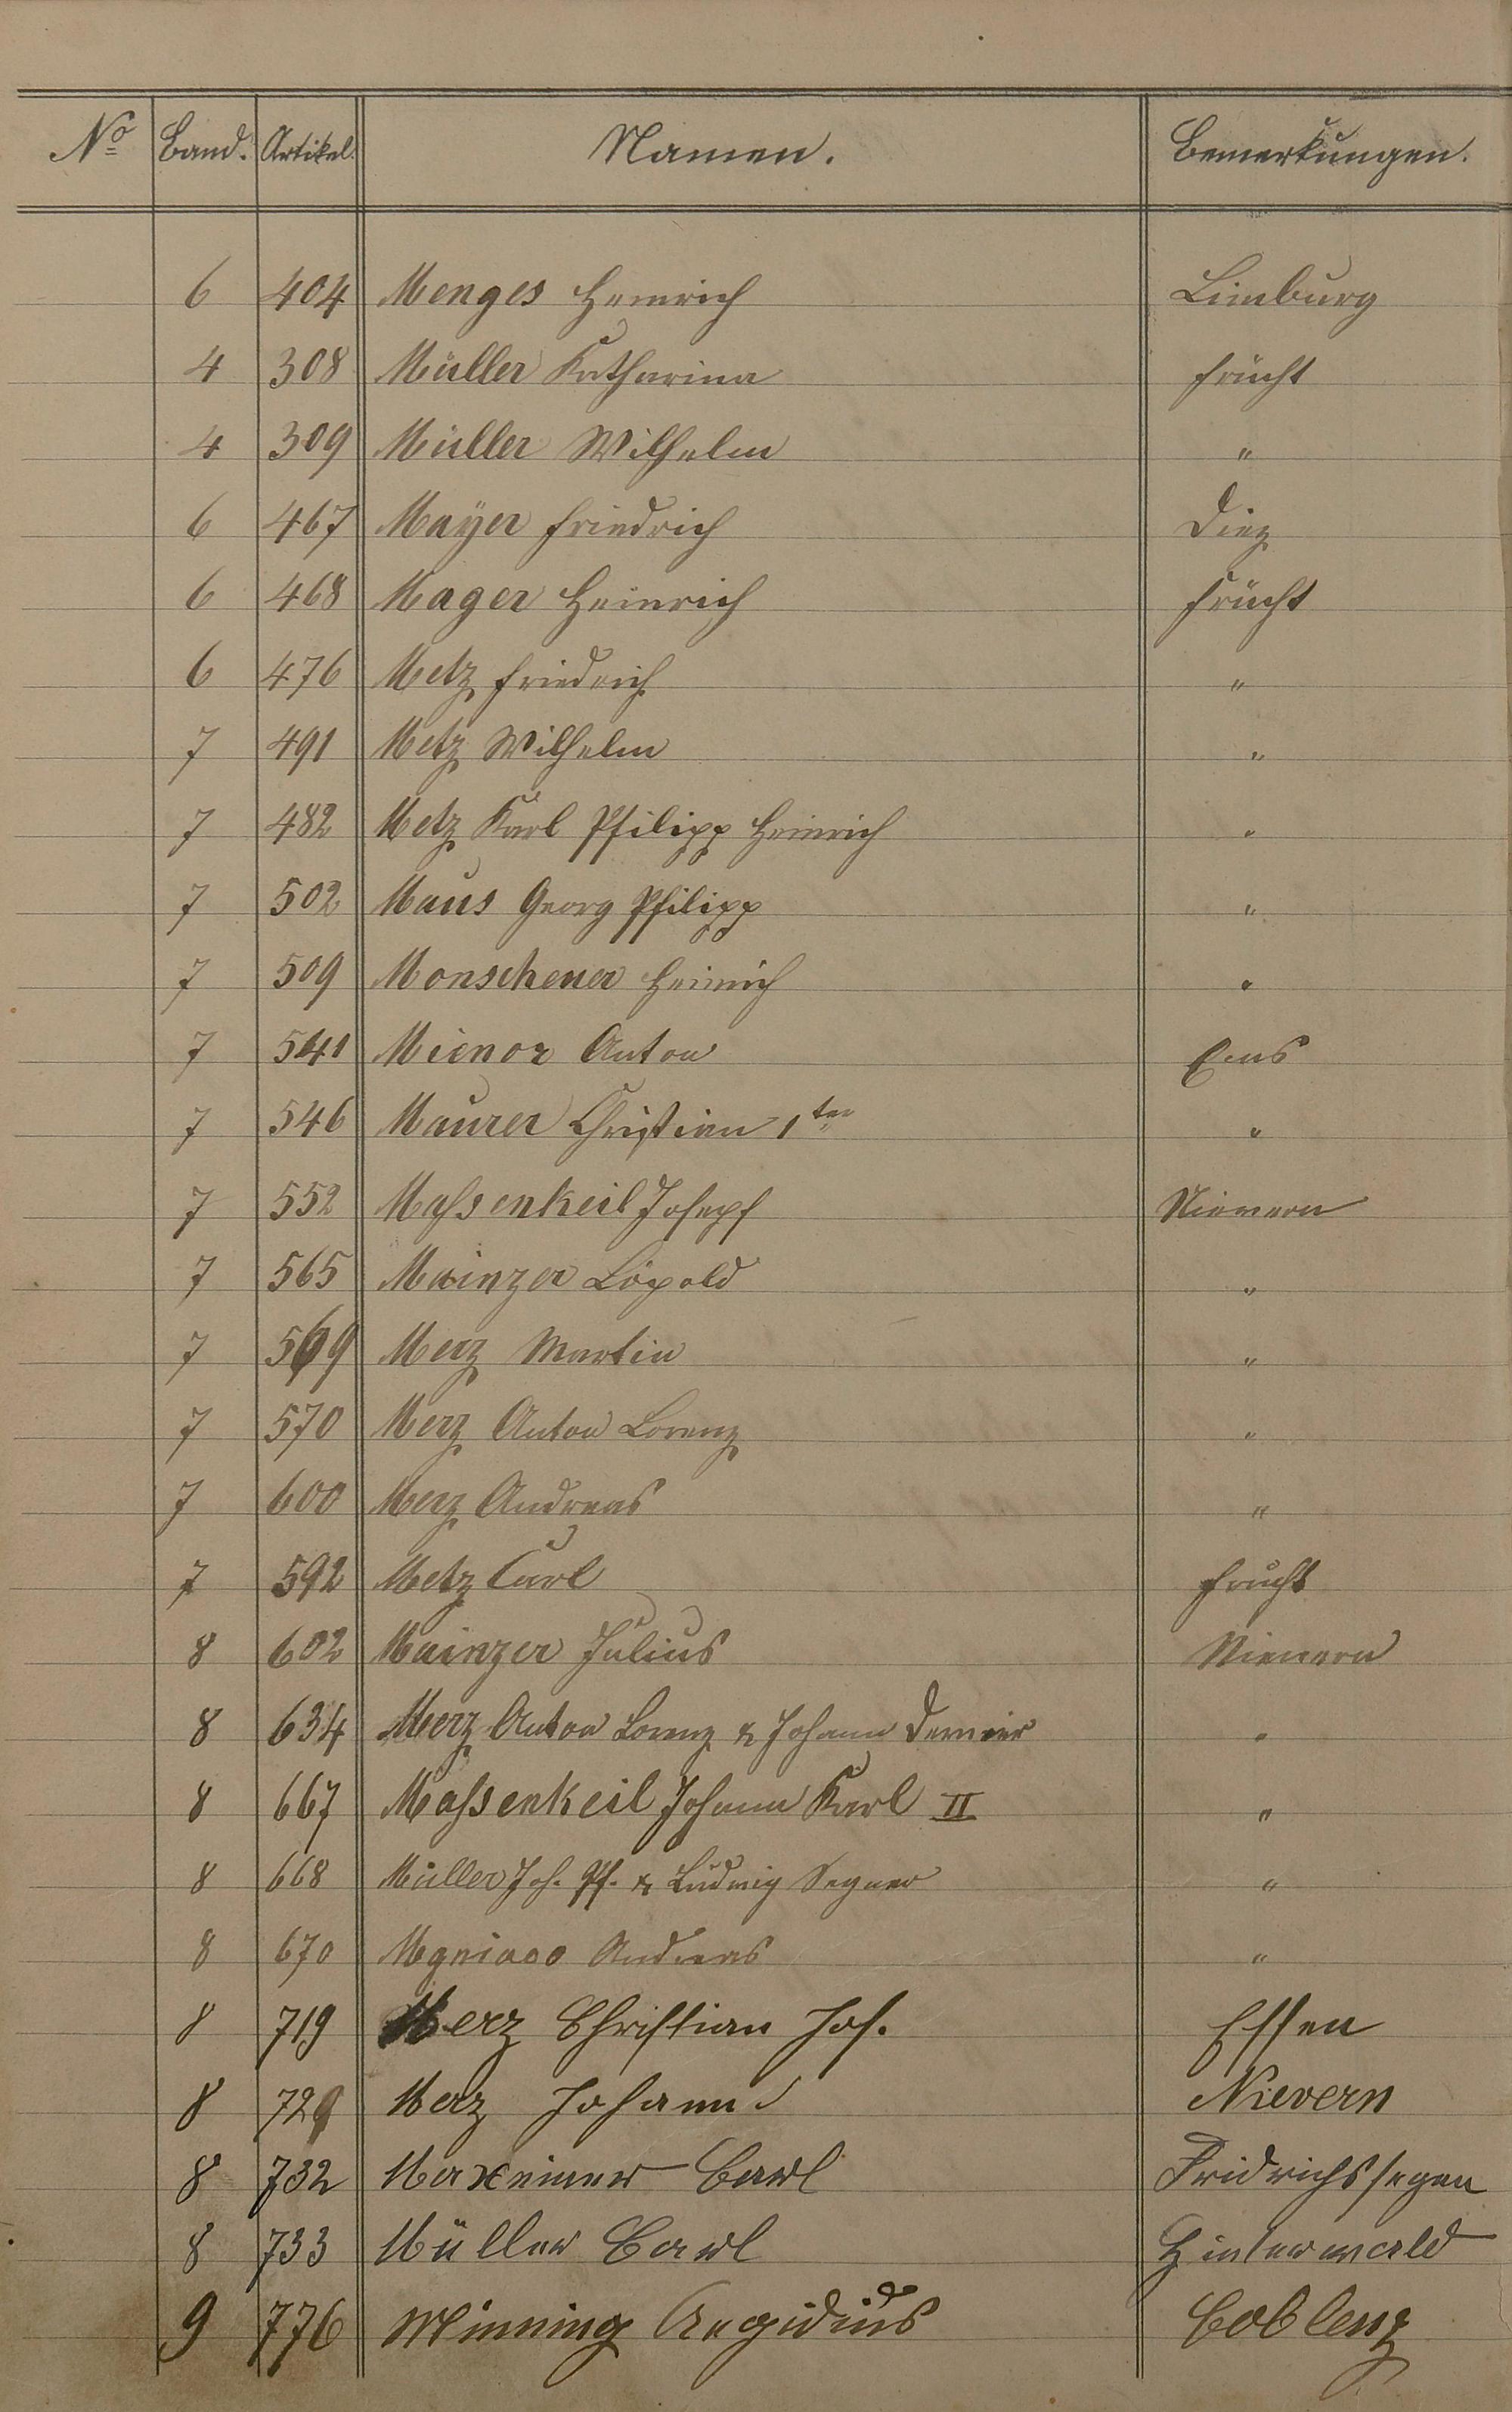 No Band. Artikel. Namen. Bemerkungen.
6 404 Menges Heinrich Limburg
4 308 Müller Katharina Frücht
4 309 Müller Wilhelm "
6 467 Mayer Friedrich Diez
6 468 Mager Heinrich Frücht
6 476 Metz Friedrich "
7 491 Metz Wilhelm "
7 482 Metz Karl Philipp Heinrich "
7 502 Maus Georg Philipp "
7 509 Monscheuer Heinrich "
7 541 Mienor Anton Ems
7 546 Maurer Christian 1ter "
7 552 Maßenkeil Joseph Nievern
7 565 Mainzer Löpold "
7 569 Merz Martin "
7 570 Merz Anton Lorenz "
7 600 Merz Andreas "
7 592 Metz Carl Frücht
8 602 Mainzer Julius Nievern
8 634 Merz Anton Lorenz & Johann "
8 667 Maßenkeil Johann Karl II "
8 668 Müller Joh. Ph. & Ludwig Wagner "
8 670 Andreas "
8 719 Merz Christian Jos. Essen
8 729 Merz Johann Nievern
8 732 Maxeiner Carl Fridrichssegen
8 733 Müller Carl Hinterwald
9 776 Minning Aegidius Coblenz